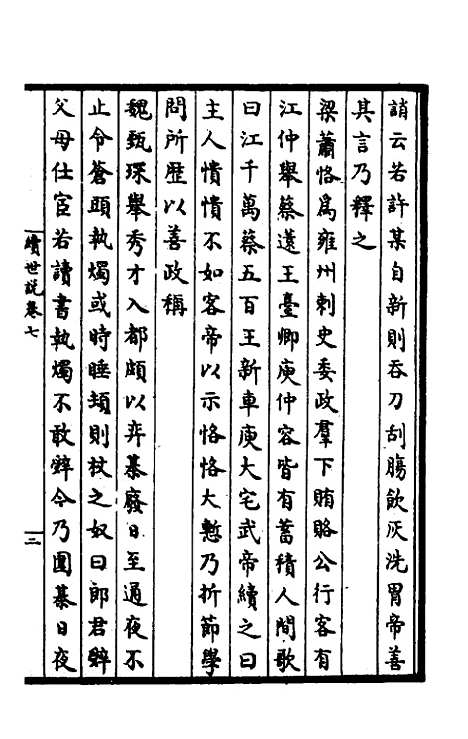 誚云若許某自新則吞刀刮腸飲灰洗胃帝善
其言乃釋之
梁蕭恪爲雍州刺史委政羣下賄賂公行客有
江仲舉蔡薳王臺卿庾仲容皆有蓄積人間歌
曰江千萬蔡五百王新車庾大宅武帝續之曰
主人憒憒不如客帝以示恪恪大慙乃折節學
問所歷以善政稱
魏甄琛舉秀才入都頗以弈棊廢日至通夜不
止令蒼頭執燭或時睡頓則杖之奴曰郎君辤
父母仕宦若讀書執燭不敢辤今乃圍棊日夜
續世說卷七
三